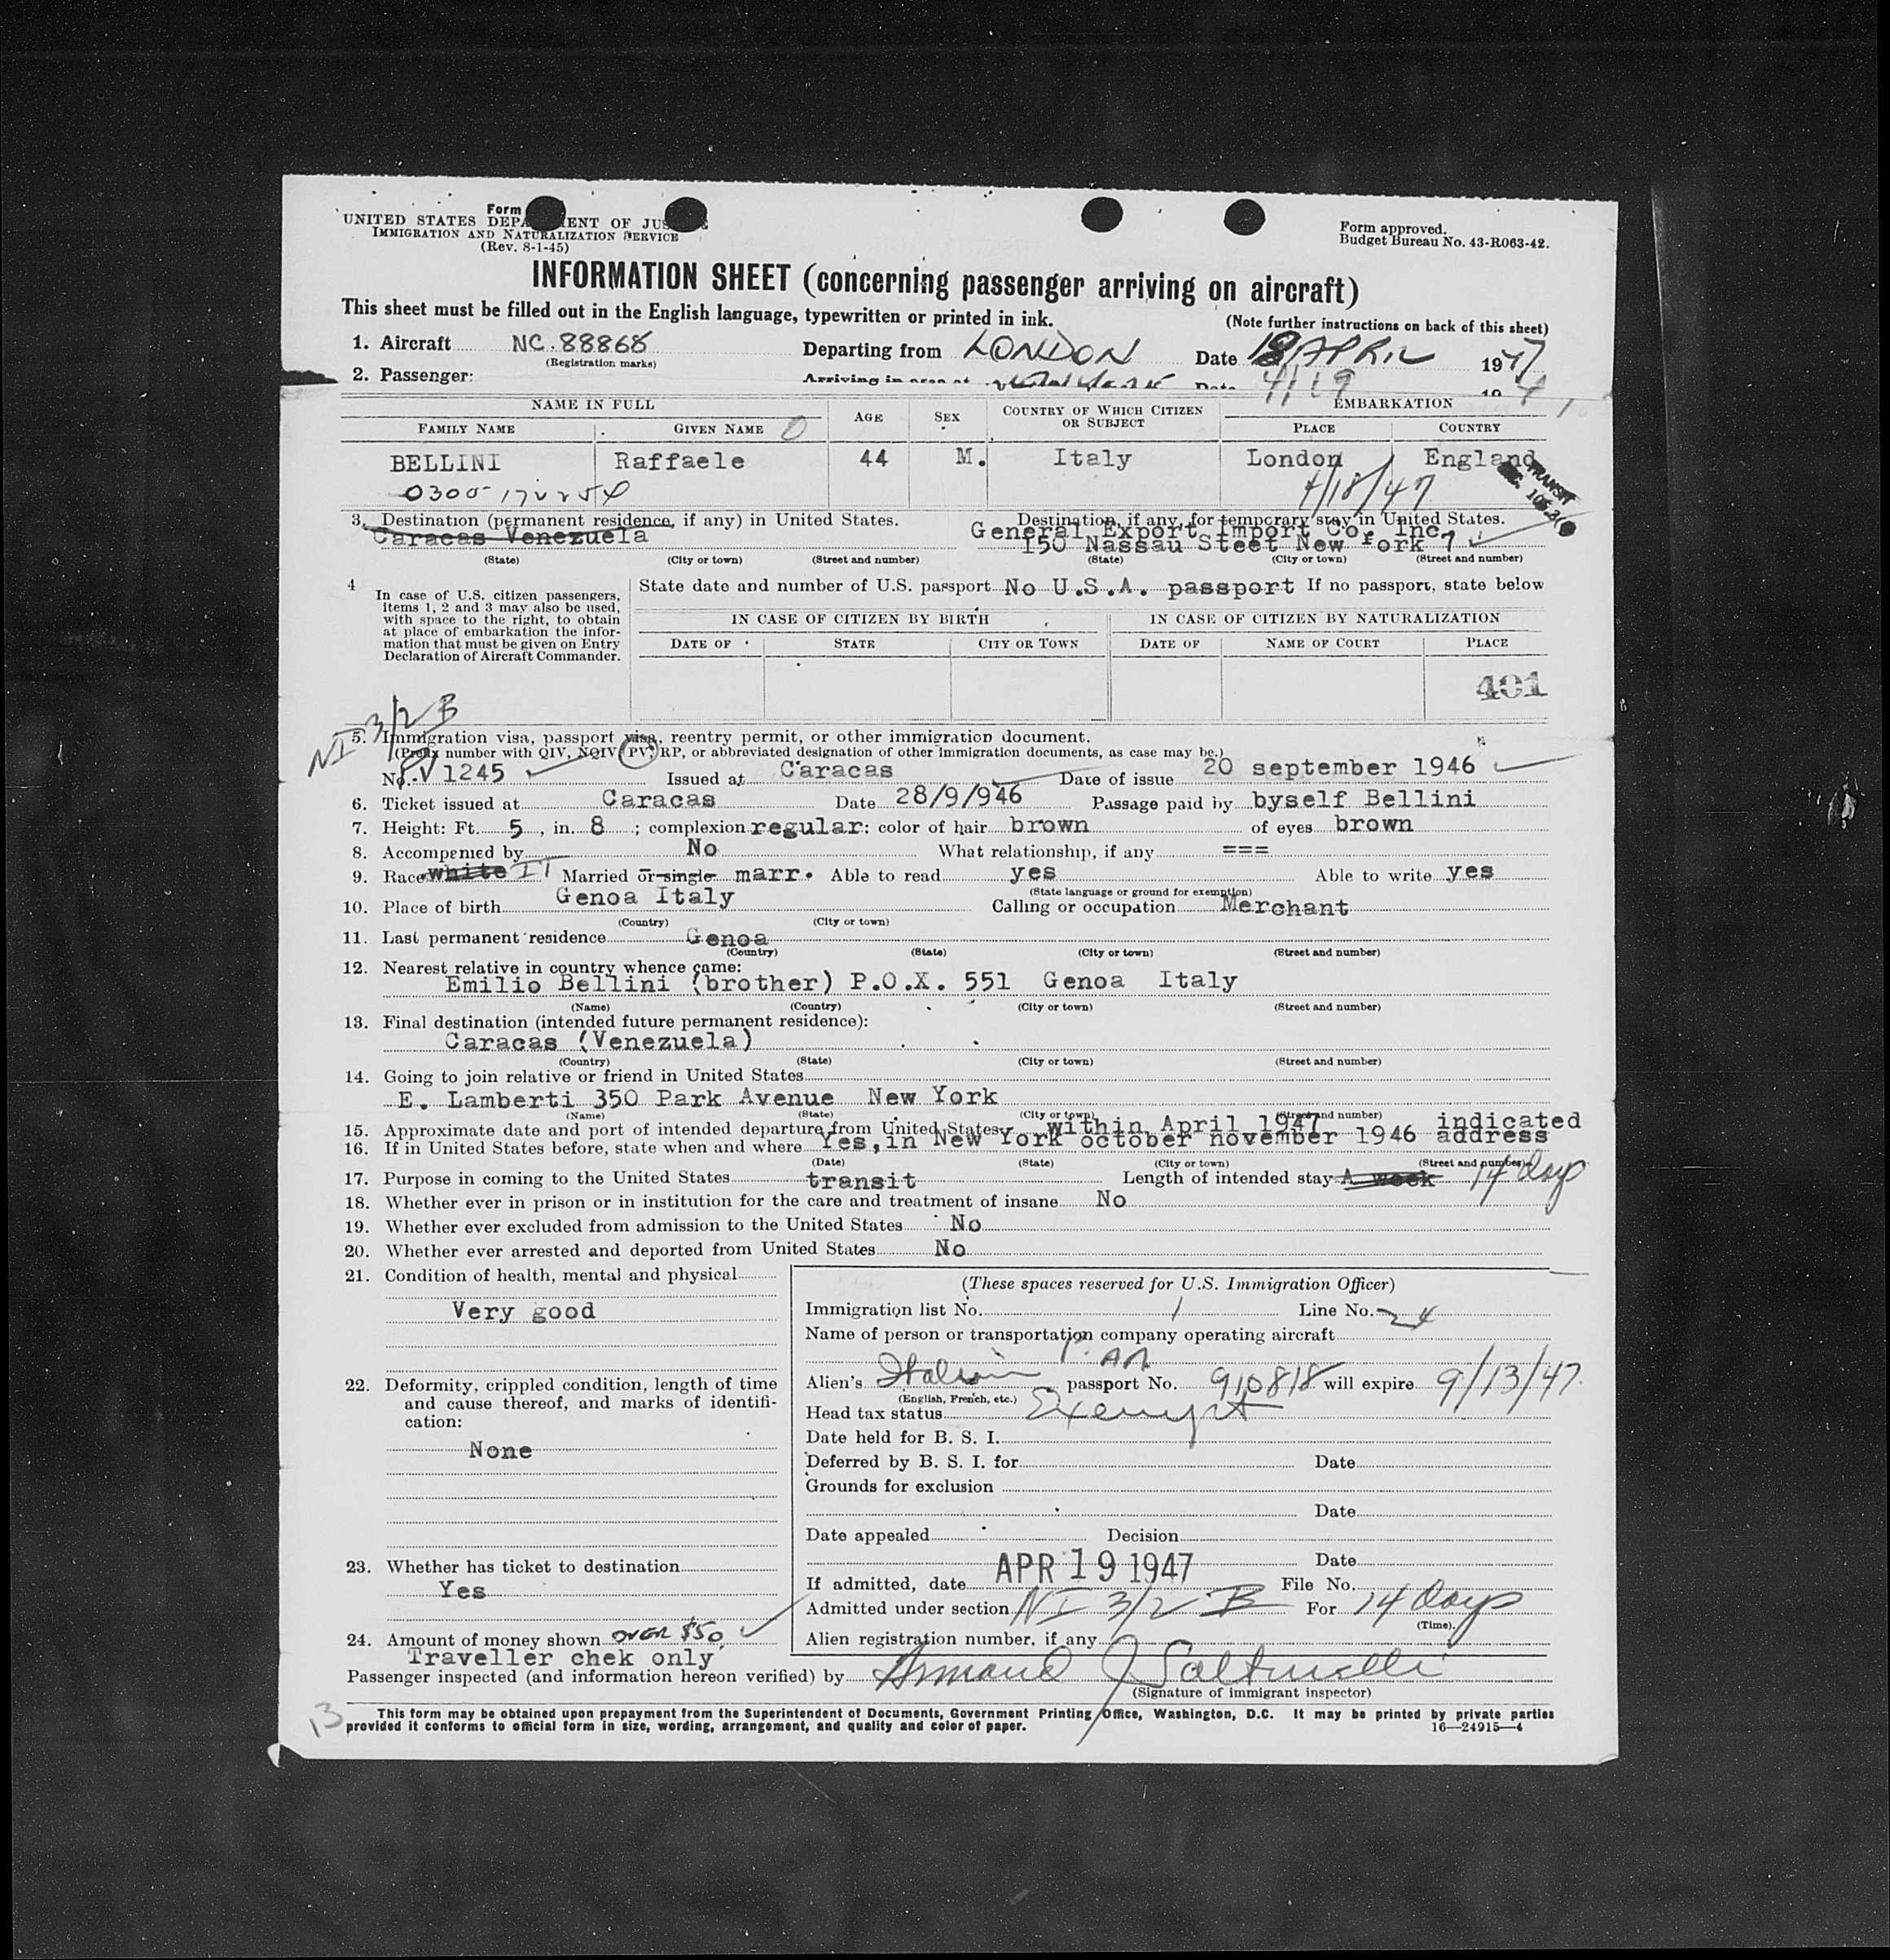 Form
UNITED STATES DEPA ENT OF JUS
IMMIGRATION AND NATURALIZATION SERVICE
(Rev. 8-1-45)
Form approved.
Budget Bureau No. 43-R063-42.
INFORMATION SHEET (concerning passenger arriving on aircraft)
This sheet must be filled out in the English language, typewritten or printed in ink.
(Note further instructions on back of this sheet)
1. Aircraft NC.88868 Departing from LONDON Date 18 APRIL 1947
(Registration marks)
2. Passenger: Arriving in area at Date 4/19 194
NAME IN FULL AGE SEX COUNTRY OF WHICH CITIZEN OR SUBJECT EMBARKATION
FAMILY NAME GIVEN NAME PLACE COUNTRY
BELLINI Raffaele 44 M. Italy London England
0300 4/18/47
TRANSIT
3. Destination (permanent residence, if any) in United States. Destination, if any, for temporary stay in United States.
Caracas Venezuela General Export Import Co. Inc.
150 Nassau Steet New York 7
(State) (City or town) (Street and number) (State) (City or town) (Street and number)
4 In case of U.S. citizen passengers, items 1, 2 and 3 may also be used, with space to the right, to obtain at place of embarkation the information that must be given on Entry Declaration of Aircraft Commander.
State date and number of U.S. passport No U.S.A. passport If no passport, state below
IN CASE OF CITIZEN BY BIRTH IN CASE OF CITIZEN BY NATURALIZATION
DATE OF STATE CITY OR TOWN DATE OF NAME OF COURT PLACE
401
NI 3/2 B
5. Immigration visa, passport visa, reentry permit, or other immigration document.
(Prefix number with QIV, NQIV, PV, RP, or abbreviated designation of other immigration documents, as case may be.)
No. PV 1245 Issued at Caracas Date of issue 20 september 1946
6. Ticket issued at Caracas Date 28/9/946 Passage paid by byself Bellini
7. Height: Ft. 5, in. 8; complexion regular: color of hair brown of eyes brown
8. Accompenied by No What relationship, if any ===
9. Race white IT Married or single marr. Able to read yes Able to write yes
(State language or ground for exemption)
10. Place of birth Genoa Italy Calling or occupation Merchant
(Country) (City or town)
11. Last permanent residence Genoa
(Country) (State) (City or town) (Street and number)
12. Nearest relative in country whence came:
Emilio Bellini (brother) P.O.X. 551 Genoa Italy
(Name) (Country) (City or town) (Street and number)
13. Final destination (intended future permanent residence):
Caracas (Venezuela)
(Country) (State) (City or town) (Street and number)
14. Going to join relative or friend in United States
E. Lamberti 350 Park Avenue New York
(Name) (State) (City or town) (Street and number)
15. Approximate date and port of intended departure from United States within April 1947 indicated
16. If in United States before, state when and where Yes, in New York october november 1946 address
(Date) (State) (City or town) (Street and number)
17. Purpose in coming to the United States transit Length of intended stay A week 14 days
18. Whether ever in prison or in institution for the care and treatment of insane No
19. Whether ever excluded from admission to the United States No
20. Whether ever arrested and deported from United States No
21. Condition of health, mental and physical
Very good
22. Deformity, crippled condition, length of time and cause thereof, and marks of identification:
None
23. Whether has ticket to destination
Yes
24. Amount of money shown OVER $50
Traveller chek only
(These spaces reserved for U.S. Immigration Officer)
Immigration list No. 1 Line No. 24
Name of person or transportation company operating aircraft
P. AA
Alien's Italian passport No. 910818 will expire 9/13/47
(English, French, etc.)
Head tax status Exempt
Date held for B. S. I.
Deferred by B. S. I. for Date
Grounds for exclusion
Date
Date appealed Decision
Date
If admitted, date APR 19 1947 File No.
Admitted under section NI 3/2 B For 14 days
(Time)
Alien registration number, if any
Passenger inspected (and information hereon verified) by Armand J
(Signature of immigrant inspector)
13
This form may be obtained upon prepayment from the Superintendent of Documents, Government Printing Office, Washington, D.C. It may be printed by private parties
provided it conforms to official form in size, wording, arrangement, and quality and color of paper.
16—24915—4